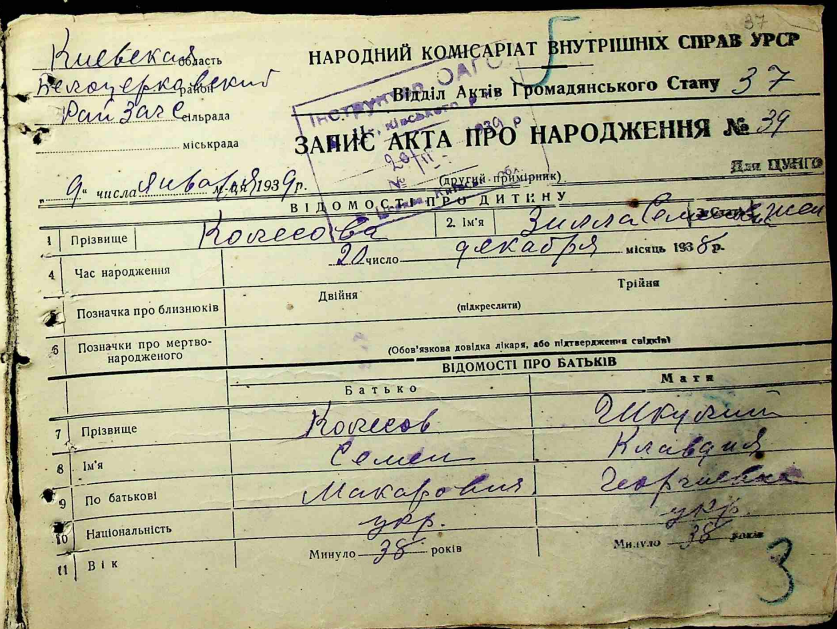 37
Киевская область
Белоцерковский район
Рай Загс сільрада
міськрада
НАРОДНИЙ КОМІСАРІАТ ВНУТРІШНІХ СПРАВ УРСР
Відділ Актів Громадянського Стану 37
ЗАПИС АКТА ПРО НАРОДЖЕННЯ № 39
„9" числа января м-ця 1939р.
(другий примірник)
Для ЦУНГО
ІНСТРУКТОР ОАГС
ВІДОМОСТІ ПРО ДИТИНУ
1 Прізвище Колесова 2. Ім'я
4 Час народження 20 число декабря місяць 1938 р.
5 Позначка про близнюків Двійня Трійня
(підкреслити)
6 Позначки про мертво-
народженого
(Обов'язкова довідка лікаря, або підтвердження свідків)
ВІДОМОСТІ ПРО БАТЬКІВ
Батько Мати
7 Прізвище Колесов
8 Ім'я Семен Клавдия
9 По батькові Макарович Георгиевна
10 Національність укр. укр.
11 Вік Минуло 38 років Минуло 38 років
3